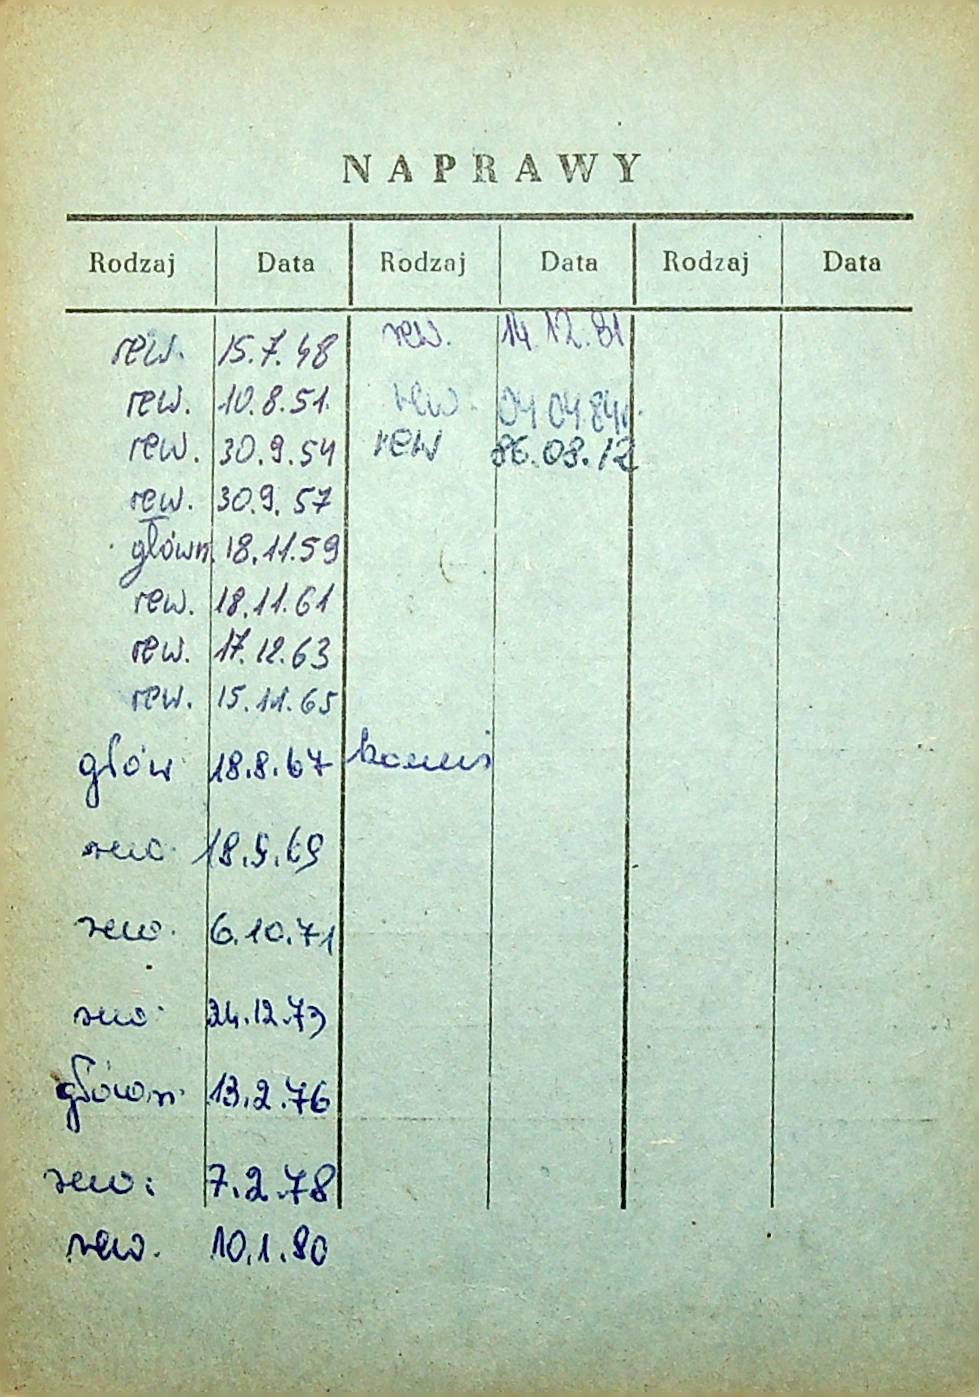 NAPRAWY
Rodzaj Data Rodzaj Data Rodzaj Data
rew. 15.7.48 rew. 14.12.81
rew. 10.8.51. rew. 04 04 84r.
rew. 30.9.54 rew 86.08.12
rew. 30.9.57
główn. 18.11.59
rew. 18.11.61
rew. 17.12.63
rew. 15.11.65
głów 18.8.67
rew. 18.9.69
rew. 6.10.71
rew. 24.12.73
główn. 13.2.76
rew. 7.2.78
rew. 10.1.80